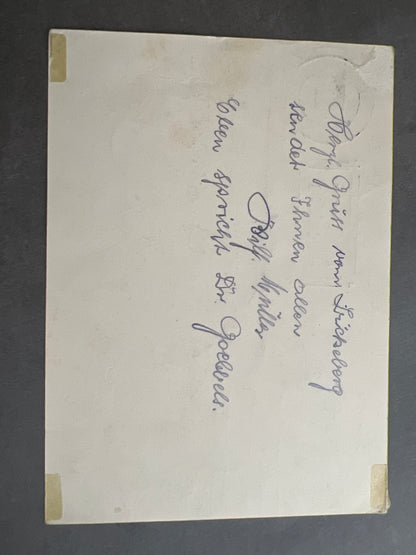 Herzl. Gruß vom Bückeberg
sendet Ihnen allen
Müller
Eben spricht Dr. Goebbels.